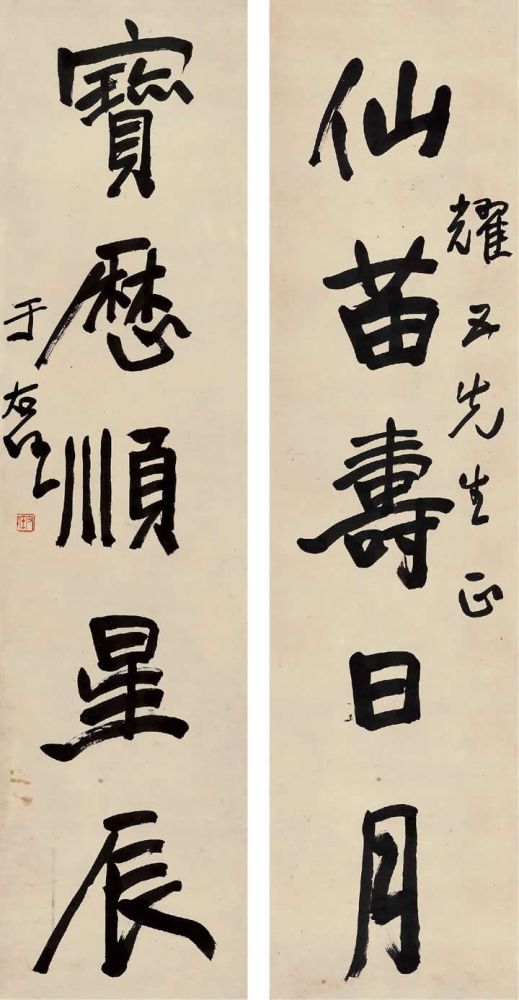 仙苗壽日月
耀五先生正
寶歷順星辰
于右任